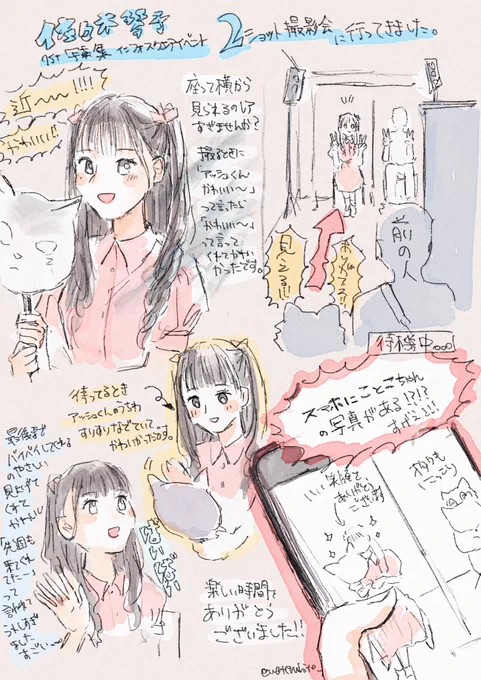 佐々木琴子
1st 写真集 インフォスタンライベント
2ショット撮影会
に行ってきました。
近〜〜!!!!
かわいい!!
座って横から
見られるのレア
すぎませんか?
撮るときに
「アッシュくん
かわいい〜」
って言ったら
「かわいい〜」
って言って
くれてかわい
かったです。
見える!!!
前の人
待機中....
待ってるとき
アッシュくんのうちわ
すりすりなでていて
かわいかったのです。
スマホにことこちゃん
の写真がある!?!?
すごい!!!
最後まで
バイバイしてくれる
のやさしい
見上げて
くれて
かわいい
「先週も
来てくれ
てたー」
って
言われて
うれしすぎ
ました
ばいばい
楽しい時間を
ありがとう
ございました!!